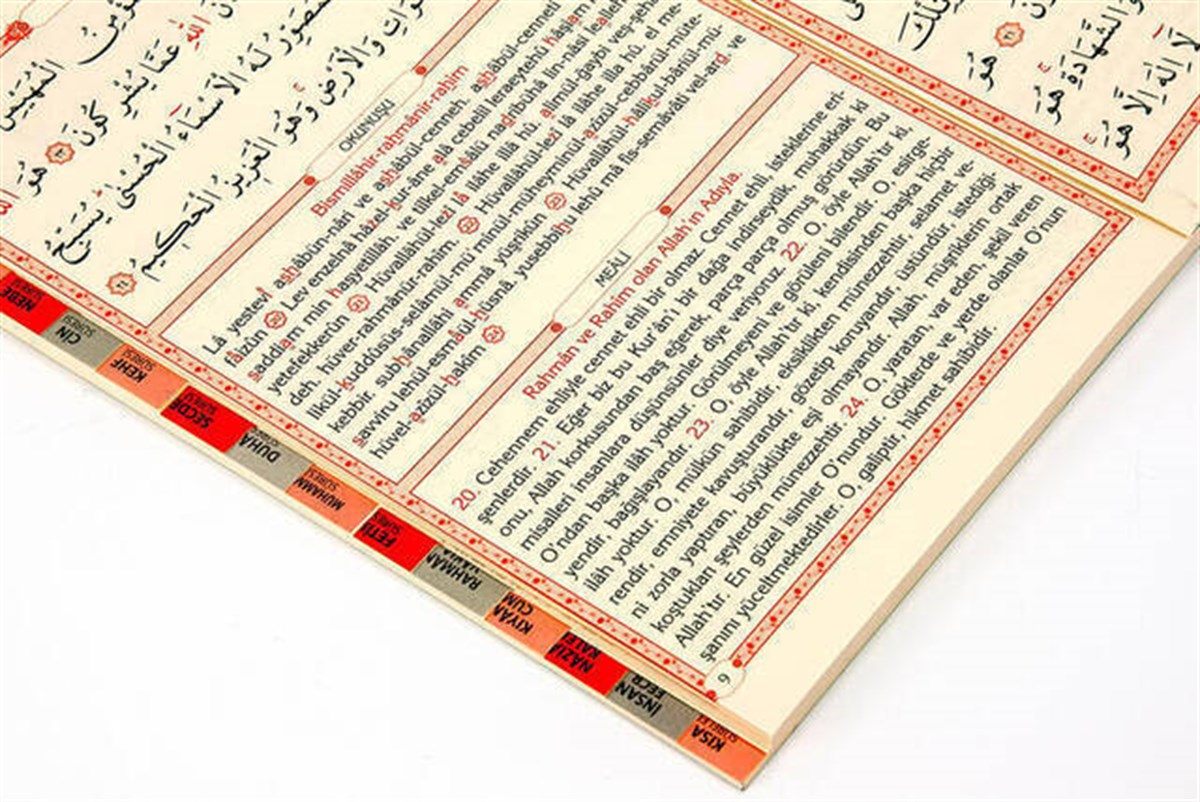 الْمُهَيْمِنُ
اللهِ عَمَّا يُشْرِكُونَ ﴿٢٣﴾ هُوَ
لَهُ الْأَسْمَاءُ الْحُسْنَى يُسَبِّحُ
وَالْأَرْضِ وَهُوَ الْعَزِيزُ الْحَكِيمُ ﴿٢٤﴾
OKUNUŞU
Bismillâhir-rahmânir-rahîm
Lâ yestevî ashâbün-nâri ve ashâbül-cenneh. ashâbül-cenneti
fâizûn Lev enzelnâ hâzel-kur-âne alâ cebelil leraeytehû hâşiam
saddiam min haşyetillâh. ve tilkel-emsâlü nadribühâ lin-nâsi leallehüm
yetefekkerûn Hüvallâhül-lezî lâ ilâhe illâ hû. âlimül-ğaybi veş-şehâ
deh. hüver-rahmânür-rahîm. Hüvallâhül-lezî lâ ilâhe illa hû, el me-
likül-kuddûsüs-selâmül-mü'minül-müheyminül-azîzül-cebbârül-müte-
kebbir. subhânallâhi ammâ yüşrikûn Hüvallâhül-hâlikul-bâriül-mü-
savviru lehül-esmâül-hüsnâ, yusebbihu lehû mâ fis-semâvâti vel-ard. ve
hüvel-azîzül-hakîm
MEÂLİ
Rahmân ve Rahîm olan Allah'ın Adıyla,
20. Cehennem ehliyle cennet ehli bir olmaz Cennet ehli, isteklerine eri-
şenlerdir. 21. Eğer biz bu Kur'ân'ı bir dağa indirseydik, muhakkak ki
onu, Allah korkusundan baş eğerek, parça parça olmuş görürdün. Bu
misalleri insanlara düşünsünler diye veriyoruz. 22. O, öyle Allah'tır ki,
O'ndan başka ilâh yoktur. Görülmeyeni ve görüleni bilendir. O, esirge-
yendir, bağışlayandır. 23. O, öyle Allah'tır ki kendisinden başka hiçbir
ilâh yoktur. O, mülkün sahibidir, eksiklikten münezzehtir, selamet ve-
rendir, emniyete kavuşturandır, gözetip koruyandır, üstündür, istediği-
ni zorla yaptıran, büyüklükte eşi olmayandır. Allah, müşriklerin ortak
koştukları şeylerden münezzehtir. 24. O, yaratan, var eden, şekil veren
Allah'tır. En güzel isimler O'nundur. Göklerde ve yerde olanlar O'nun
şanını yüceltmektedirler. O, galiptir, hikmet sahibidir.
9
هُوَ
وَالشَّهَادَةِ هُوَ
لَا إِلٰهَ إِلَّا هُوَ
NEBE
SÛRESİ
CİN
SÛRESİ
KEHF
SÛRESİ
SECDE
SÛRESİ
DUHÂ
MUHAMM
SÛRESİ
FETİ
SÛRESİ
RAHMAN
KIYÂM
CUM
NÂZİA
KALE
İNSAN
FECR
KISA
SÛRELE